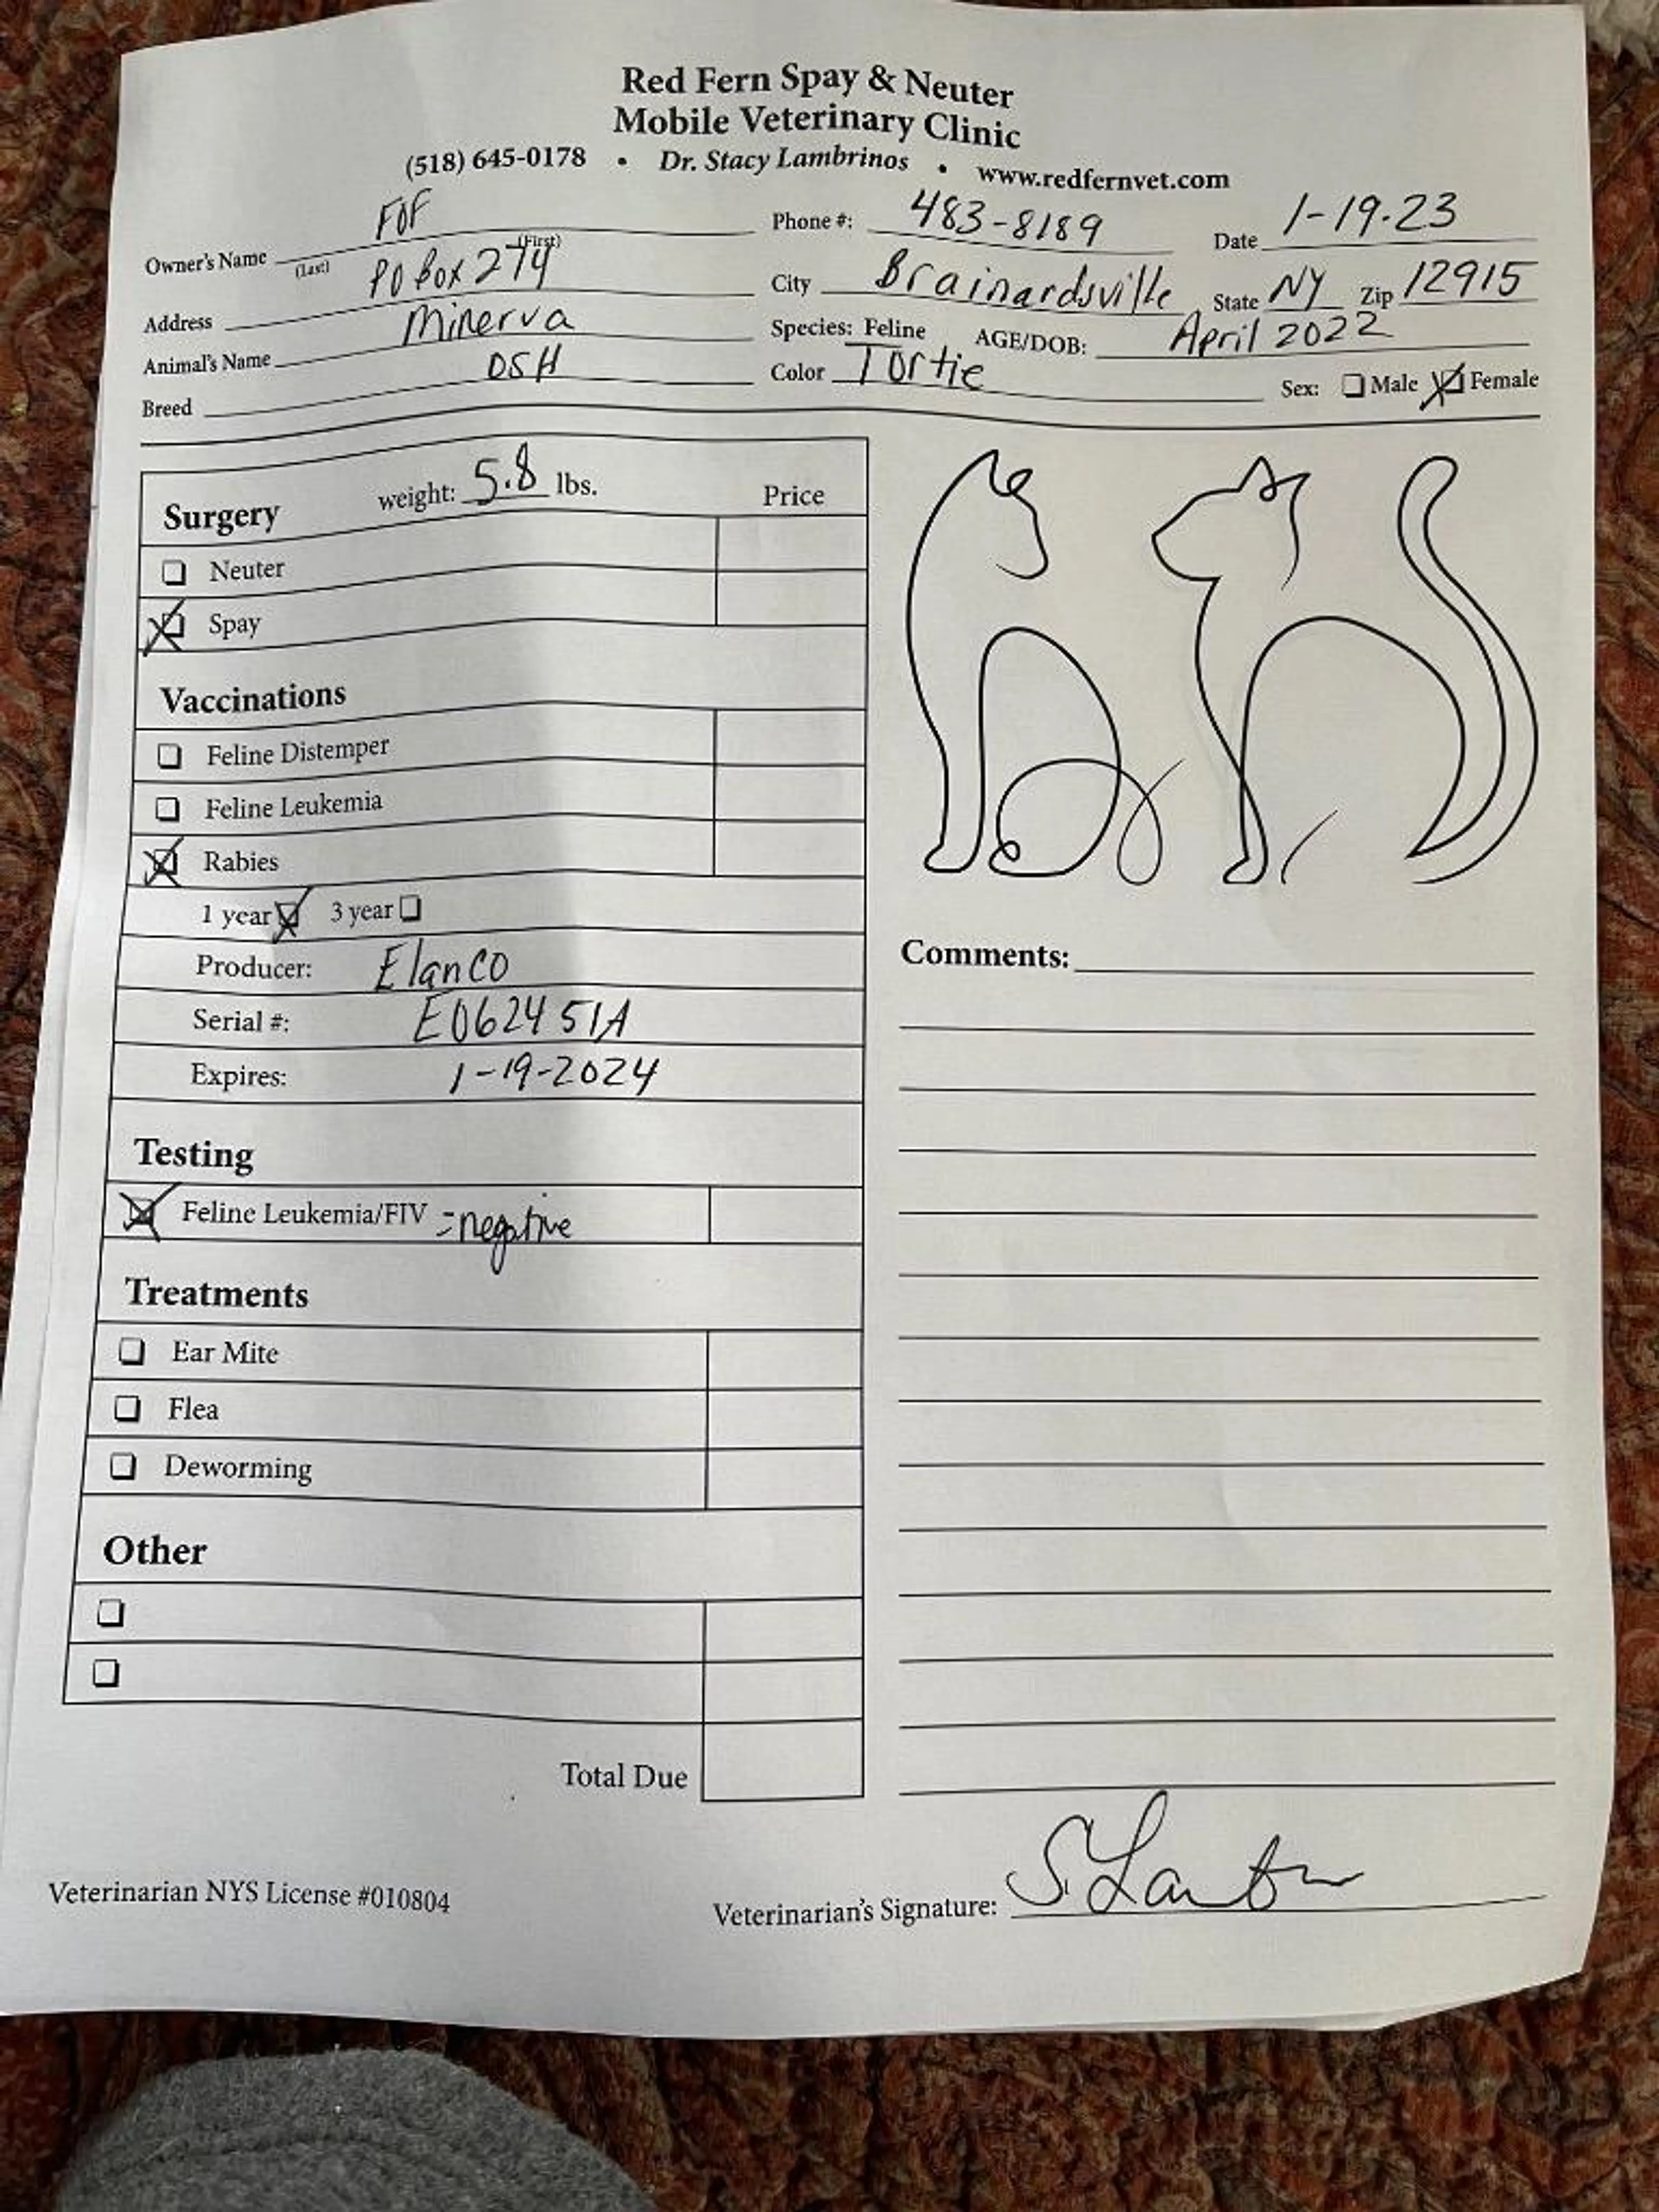 Red Fern Spay & Neuter
Mobile Veterinary Clinic
(518) 645-0178 • Dr. Stacy Lambrinos • www.redfernvet.com
Owner's Name FOF Phone #: 483-8189 Date 1-19-23
(Last) (First)
Address PO Box 274 City Brainardsville State NY Zip 12915
Animal's Name Minerva Species: Feline AGE/DOB: April 2022
Breed DSH Color Tortie Sex: Male Female
Surgery weight: 5.8 lbs. Price
Neuter
Spay
Vaccinations
Feline Distemper
Feline Leukemia
Rabies
1 year 3 year
Producer: Elanco
Serial #: E062451A
Expires: 1-19-2024
Testing
Feline Leukemia/FIV =negative
Treatments
Ear Mite
Flea
Deworming
Other
Total Due
Comments:
Veterinarian NYS License #010804
Veterinarian's Signature: